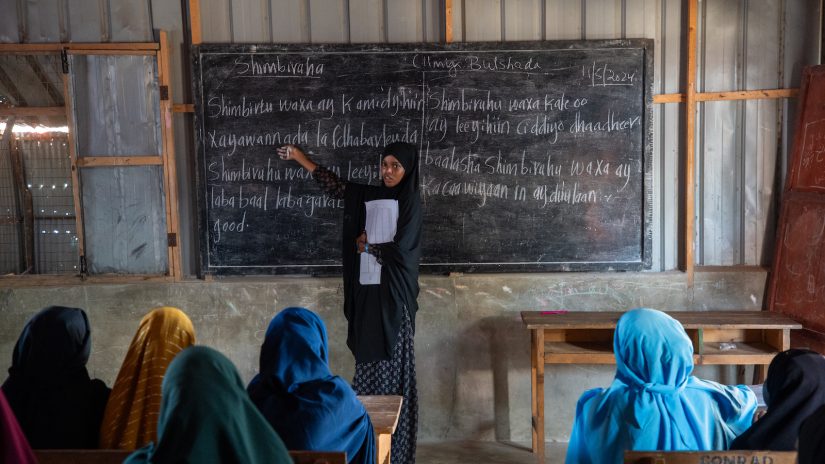 Shimbiraha
Cilmiga Bulshada 11/5/2024
Shimbirtu waxa ay kamid yihiin
xayawannada la dhabarleuda
Shimbiruhu waxa ay leeyih
laba baal laba garab
good.
Shimbiruhu waxa kale oo
ay leeyihiin ciddiyo dhaadheer
baalasha Shimbiruhu waxa ay
Kacaawiyaan in ay duulaan.
CONRAD